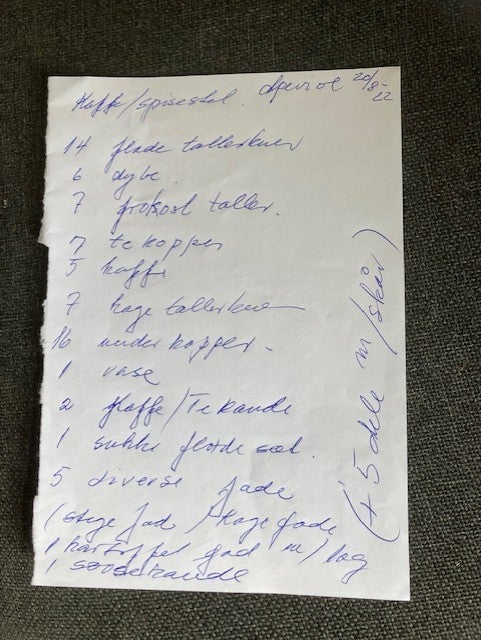 Kaffe/spisestel. 20/8-22
14 flade tallerkner
6 dybe.
7 frokost taller.
7 te kopper
5 kaffe
7 kage tallerkner
16 underkopper.
1 vase
2 Kaffe/Tekande
1 sukke fløde sæt.
5 diverse fade
(stege fad / kage fade
1 kartoffel fad m/låg
1 sovsekande
(+ 5 dele m/skår)